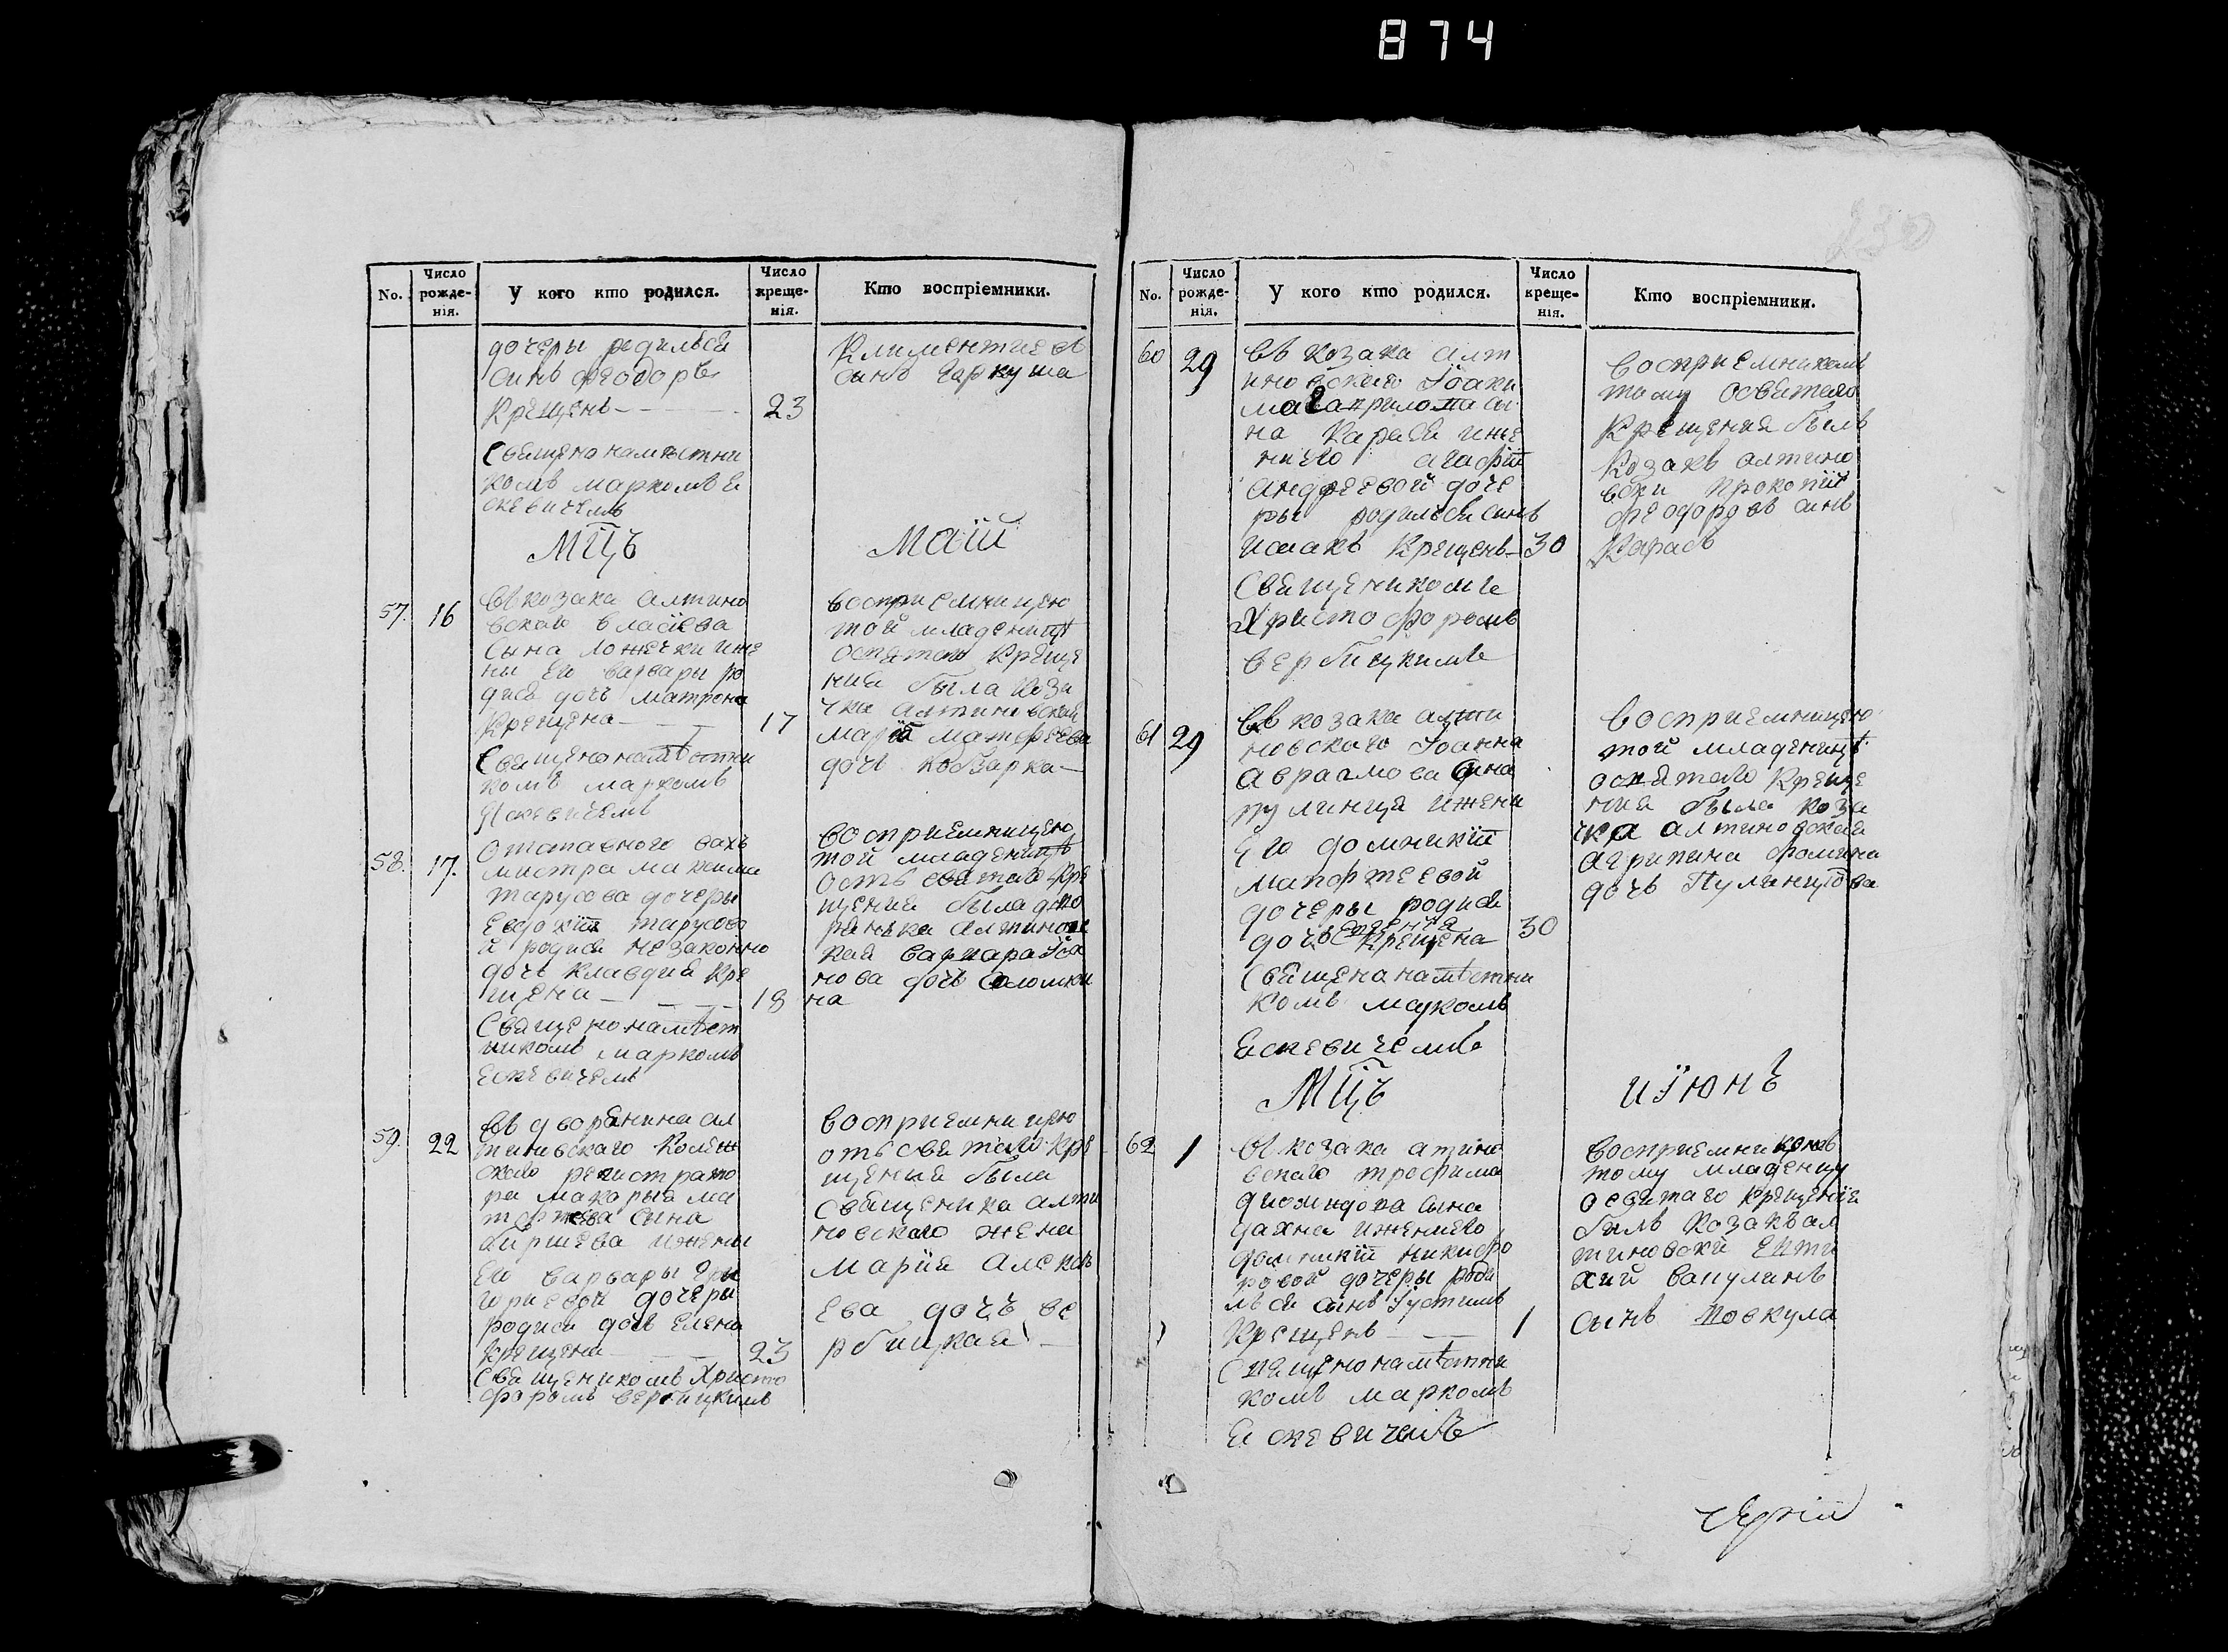 874
No.
Число рожде-нія.
У кого кто родился.
Число креще-нія.
Кто воспріемники.
дочеры родилься
синъ феодоръ
Крещенъ 23
Священонаместни
комъ маркомъ Е
скевичемъ
Климентиевъ
синъ Гаркуша
Мцъ Маій
57. 16
Въ козака алтино
вскаго власиева
сына ложечки ижe
ны Его варвары ро
дися дочъ матрона
Крещена 17
Священонамѣстни
комъ маркомъ
Яскевичемъ
восприемницею
той младеницѣ
Крице
ния была коза
чка алтиновская
дочъ кобзарка
58. 17.
Отставного вахъ
мистра
тарусова дочеры
Евдокіи тарусово
й родися незаконно
дочъ клавдия кре
щена 18
Священонамѣст
никомъ маркомъ
Ескевичемъ
восприемницею
той младеницѣ
отъ святаго Кре
щения была дво
рянька алтиновс
кая варвара Іоа
нова дочъ Соломки
на
59. 22
въ дворянина ал
тиновскаго Колеж
скаго регистрато
ра макарыя ма
тфеева сына
жены
Его варвары Гри
гориевой дочеры
родися дочъ Елена
Крещена 23
Священикомъ Христо
форомъ вербицкимъ
восприемницею
отъ святаго кре
щения была
священика алти
новскаго жена
Мария Алексѣ
ева дочъ ве
рбицкая
No.
Число рожде-нія.
У кого кто родился.
Число креще-нія.
Кто воспріемники.
60 29
въ козака алт
иновскаго Іоаки
ма Гаврилова сы
на Карася иже
ни его агафіи
андреевой доче
ры родилься синъ
исаакъ Крещенъ 30
Священикомъ
Христофоромъ
вербицкимъ
восприемникомъ
тому освятаго
Крещения былъ
Козакъ алтино
вски прокопій
феодоровъ синъ
Карась
61 29
въ козака алти
новского Іоанна
авраамова сина
пулинца ижени
Его домникіи
дочеры родися
дочъ Крещена 30
Священанамѣстни
комъ маркомъ
Ескевичемъ
восприемницею
той младеницѣ
освятаго Креще
ния была коза
чка алтиновская
агрипина фомина
дочъ
Мцъ иїюнъ
62 1
въ козака атино
вскаго трофима
сына
дахна иженыего
домникіи никифо
ровой дочеры роди
лься синъ Іустинъ
Крещенъ 1
Священонамѣстни
комъ маркомъ
Ескевичемъ
восприемникомъ
тому младенцу
освятаго крещенія
былъ Козакъ ал
тиновскй Евти
хий вакулинъ
сынъ товкула